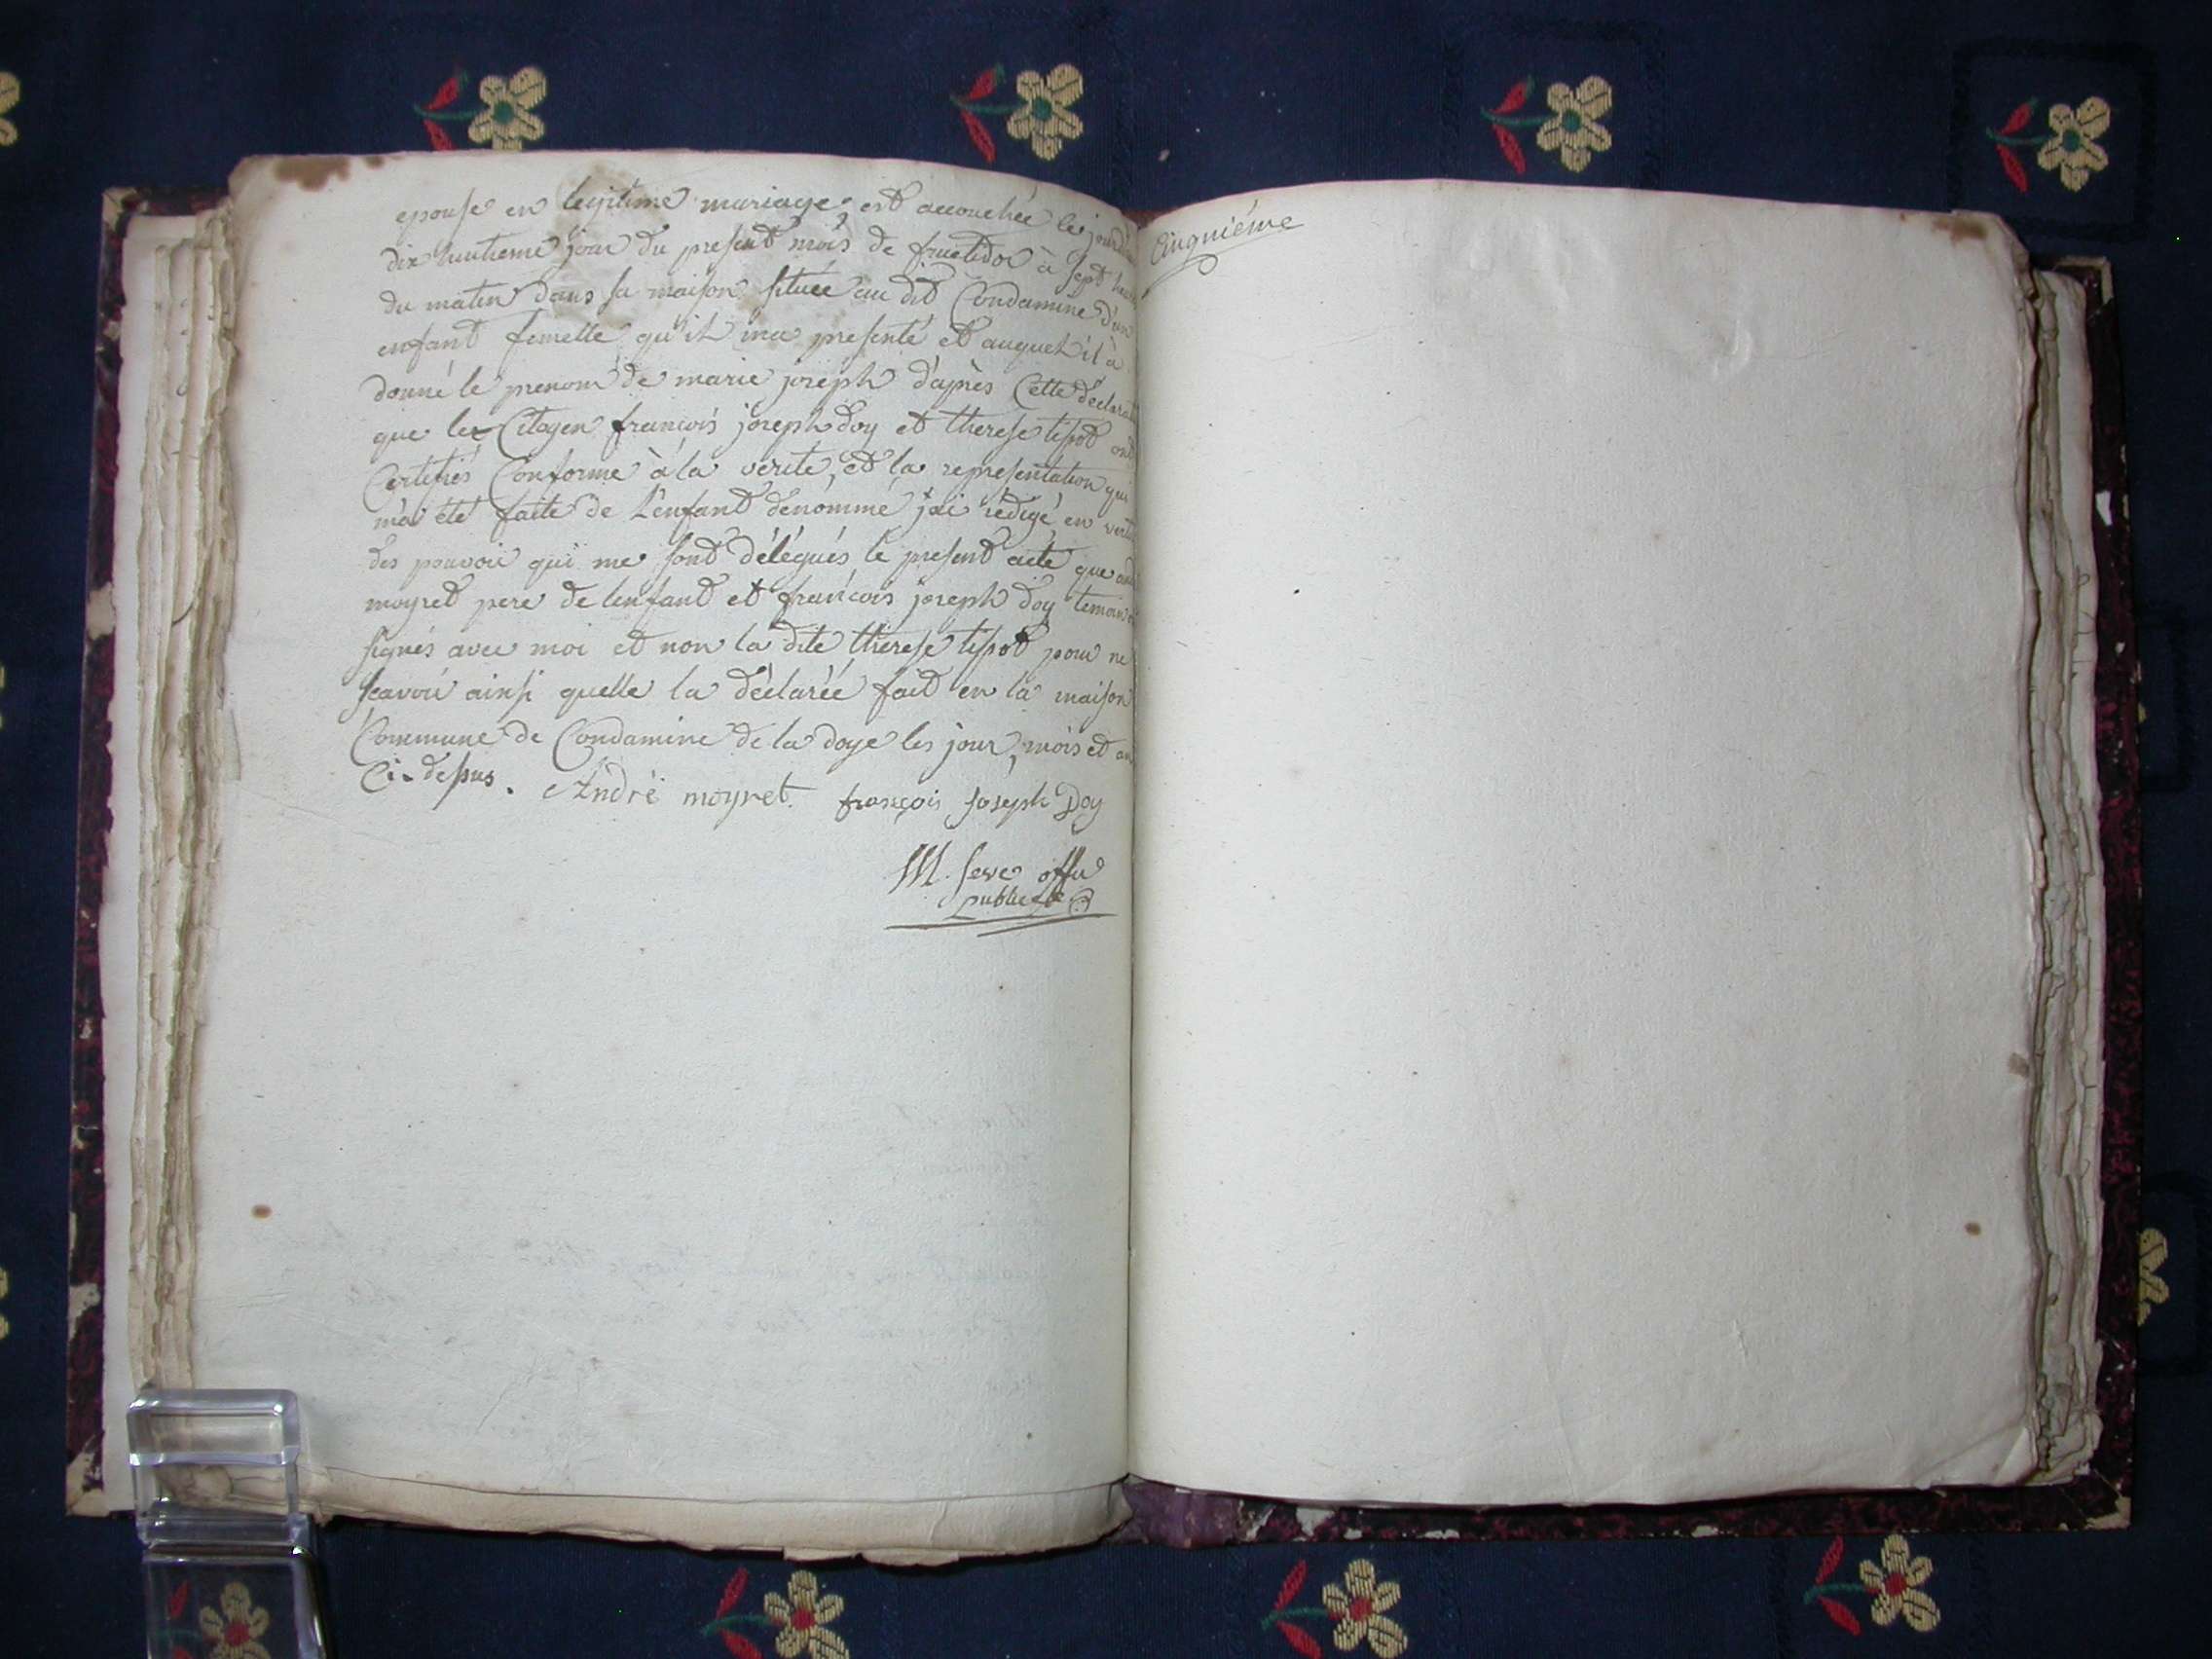 epouse en legitime mariage est accouchée le jourd'hui
dix huitieme jour du present mois de fructidor à sept heures
du matin dans sa maison située au dit Condamine d'un
enfant femelle qu'il ma presenté et auquel il à
donné le prenom de marie joseph d'après Cette déclaration
que les Citoyen francois joseph doy et therese tissot ont
Certifiés Conforme à la verité, et la representation qui
m'a été faite de l'enfant denommé j'ai rédigé en vertu
des pouvoir qui me sont délégués le present acte que
moyret pere de lenfant et francois joseph doy temoin
signés avec moi et non la dite therese tissot pour ne
scavoir ainsi quelle la déclarée fait en la maison
Commune de Condamine de la doye les jour, mois et an
Ci-dessus. André moyret françois Joseph Doy
M. seve offi
public
Cinquiéme